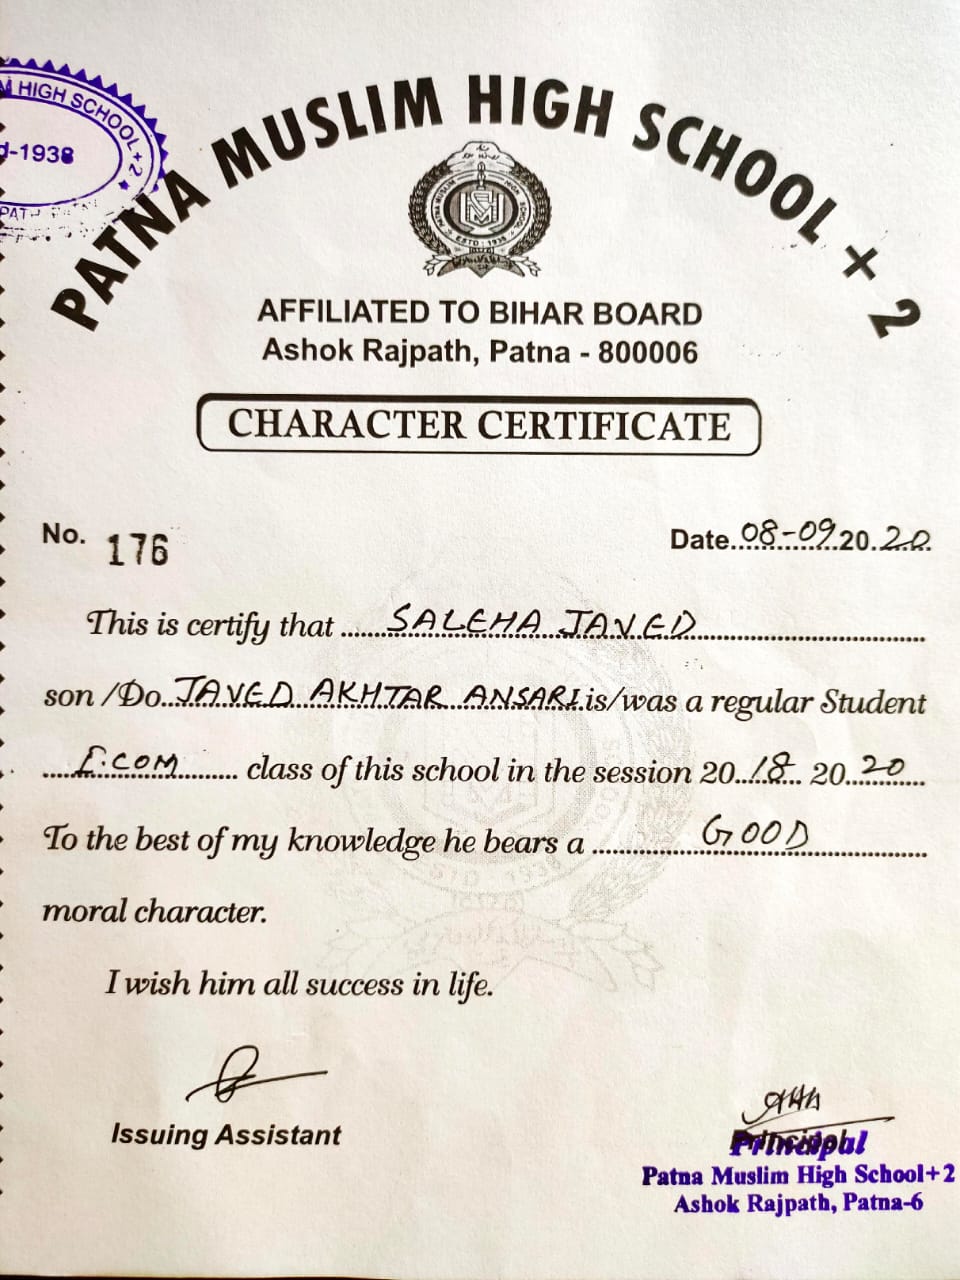 M HIGH SCHOOL+2 ★
d-1938
PATNA MUSLIM HIGH SCHOOL + 2
PATNA MUSLIM HIGH SCHOOL
ESTD : 1938
AFFILIATED TO BIHAR BOARD
Ashok Rajpath, Patna - 800006
CHARACTER CERTIFICATE
No. 176
Date..08-09.20.20.
This is certify that ......SALEHA JAVED......
son /Do..JAVED AKHTAR ANSARI.is/was a regular Student
....I.COM.... class of this school in the session 20..18.. 20..20...
To the best of my knowledge he bears a ......GOOD......
moral character.
I wish him all success in life.
Issuing Assistant
Principal
Principal
Patna Muslim High School+2
Ashok Rajpath, Patna-6